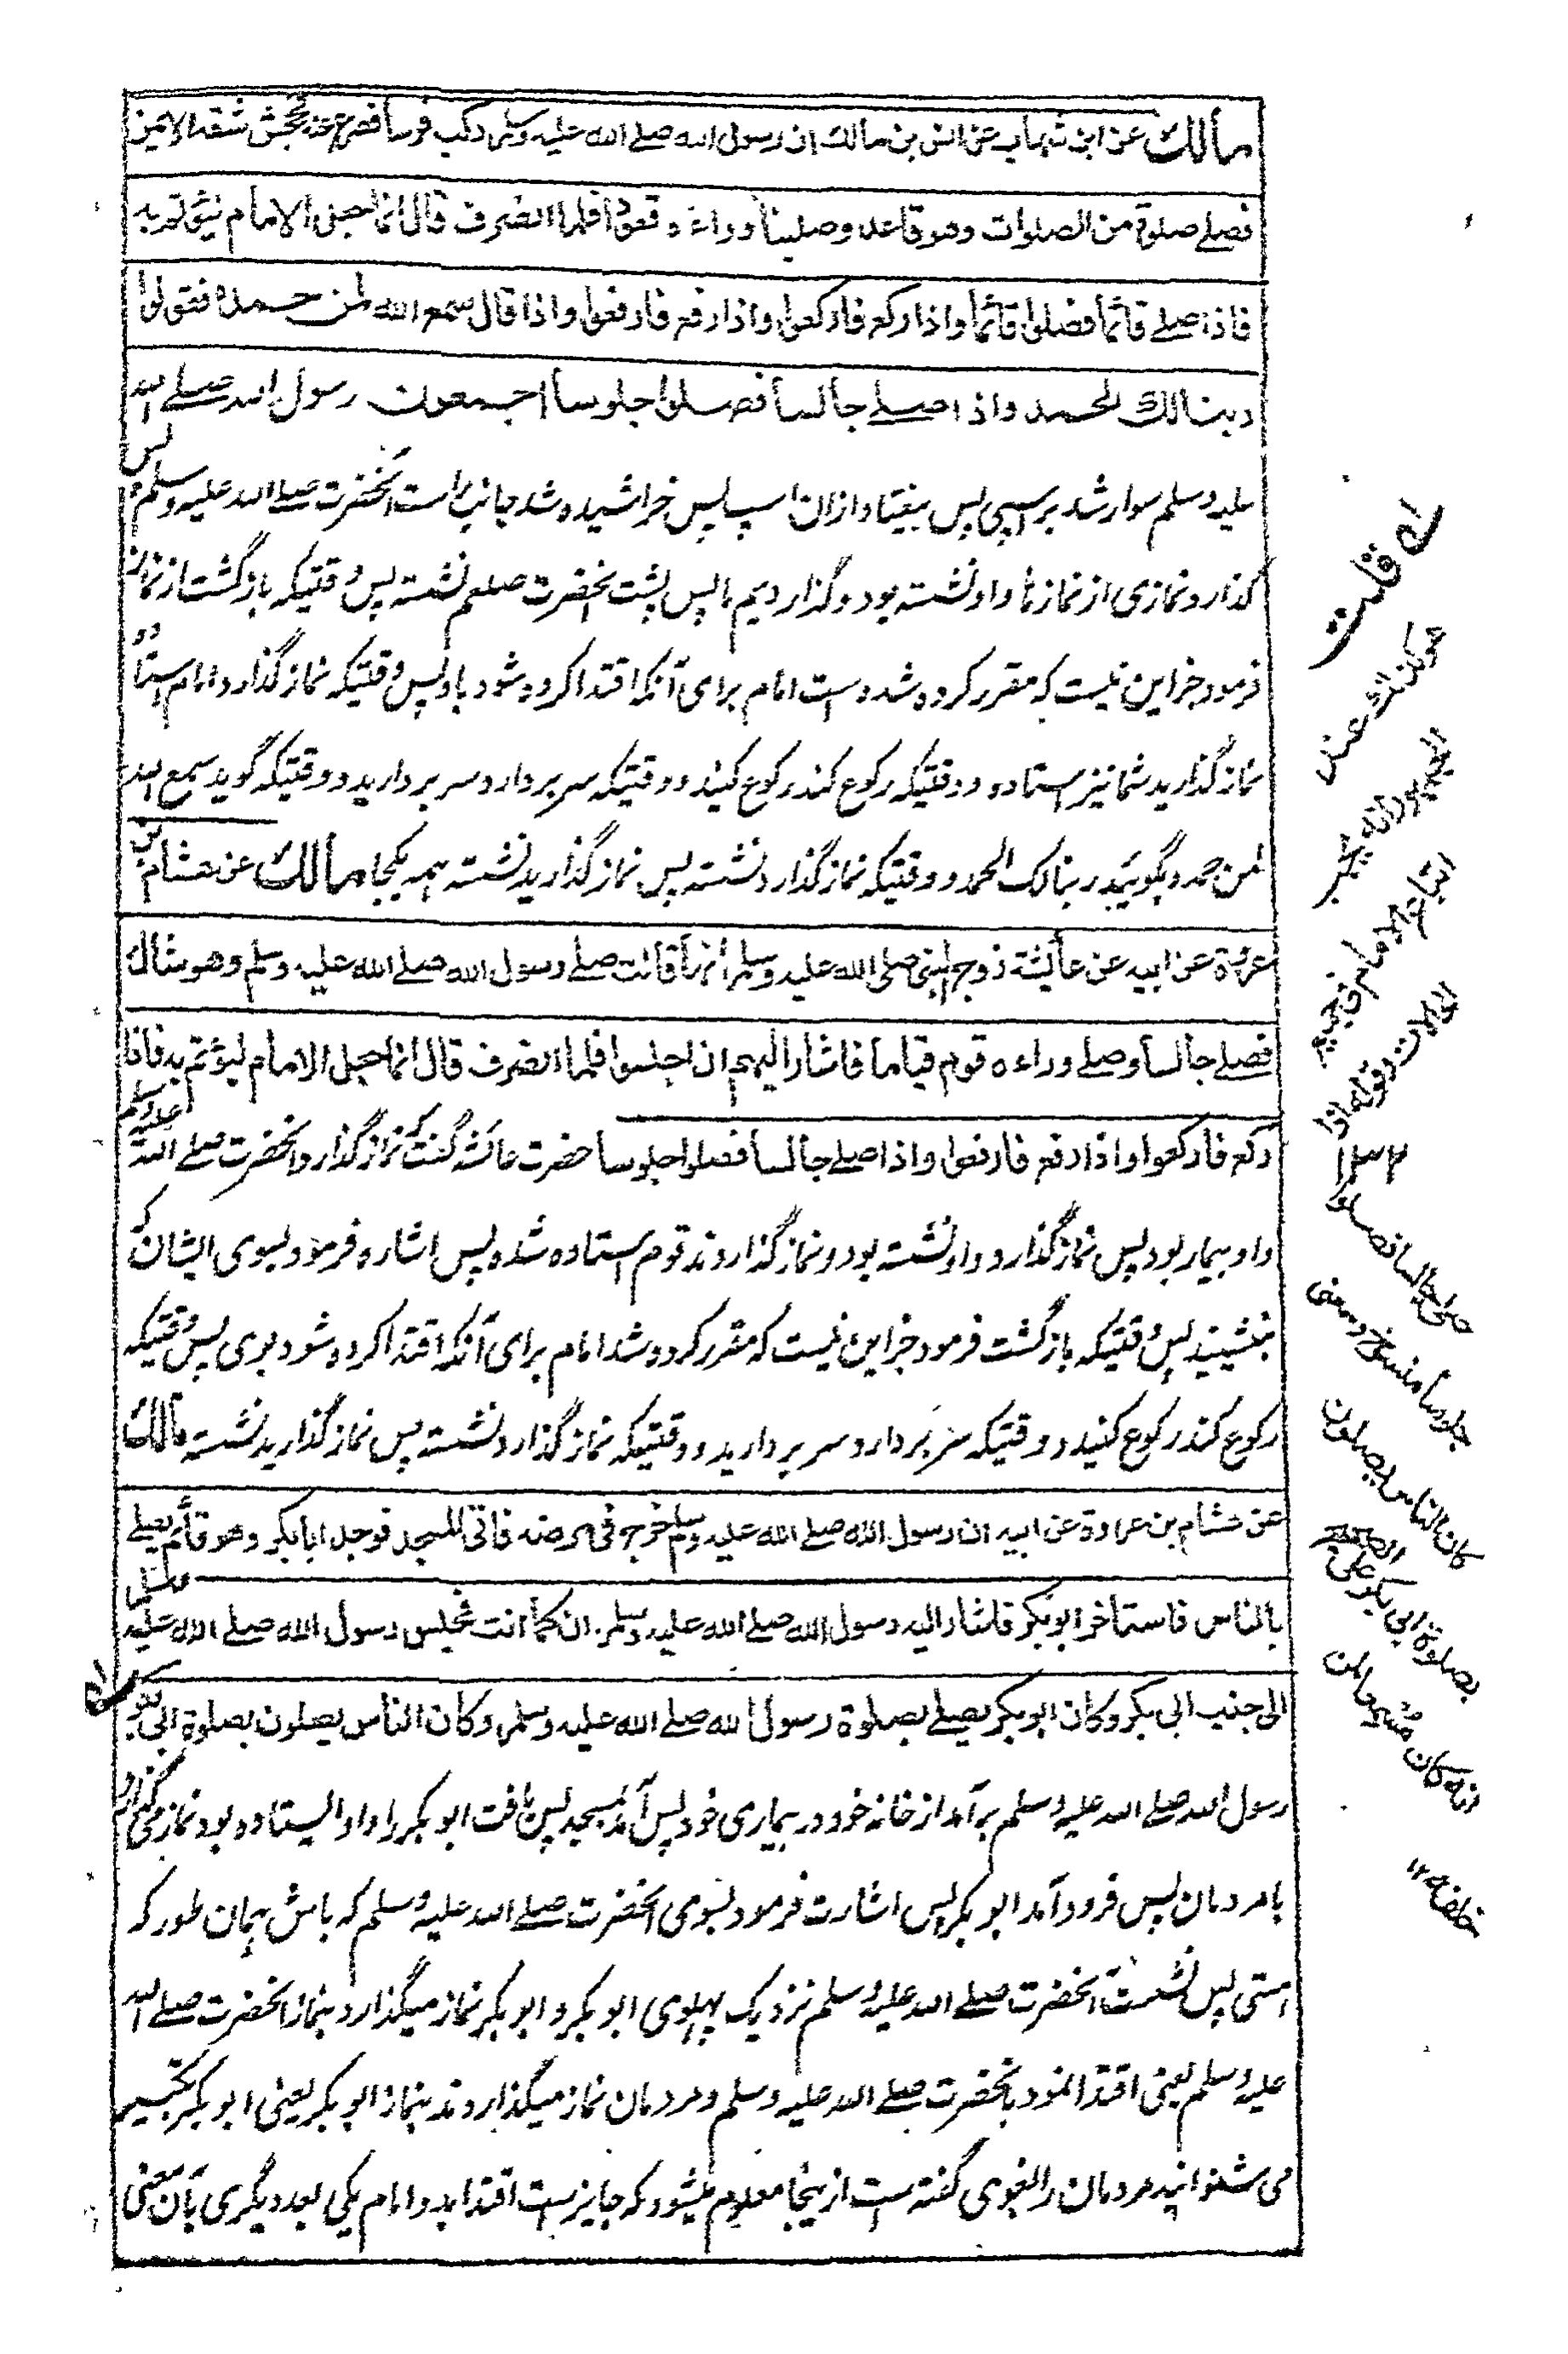 مالك عن ابن شهاب عن انس بن مالك ان رسول الله صلے الله عليه وسلم ركب فرسا فصرع عنه فجحش شقه الايمن
فصلے صلوة من الصلوات وهو قاعد وصلينا وراءه قعودا فلما انصرف قال انما جعل الامام ليؤتم به
فاذا صلے قائما فصلوا قائما واذا ركع فاركعوا واذا رفع فارفعوا واذا قال سمع الله لمن حمده فقولوا
ربنا لك الحمد واذا صلے جالسا فصلوا جلوسا اجمعون رسول الله صلے الله
عليه وسلم سوار شد بر اسپی پس بیفتاد ازان اسپ پس خراشیده شد جانب راست آنحضرت صلے الله علیه وسلم پس
گذارد نمازی از نمازها و او نشسته بود و گذاردیم ما پس پشت آنحضرت صلعم نشسته پس وقتیکه بازگشت از نماز
فرمود جز این نیست که مقرر کرده شده ست امام برای آنکه اقتدا کرده شود باو پس وقتیکه نماز گذارد امام استاده
نماز گذارید شما نیز استاده و وقتیکه رکوع کند رکوع کنید و وقتیکه سر بردارد سر بردارید و وقتیکه گوید سمع الله
لمن حمده بگوئید ربنا لک الحمد و وقتیکه نماز گذارد نشسته پس نماز گذارید نشسته همه یکجا مالك عن هشام بن
عروة عن ابيه عن عائشة زوج النبی صلی الله عليه وسلم انها قالت صلے رسول الله صلے الله عليه وسلم وهو شاك
فصلے جالسا وصلے وراءه قوم قياما فاشار اليهم ان اجلسوا فلما انصرف قال انما جعل الامام ليؤتم به فاذا
ركع فاركعوا واذا رفع فارفعوا واذا صلے جالسا فصلوا جلوسا حضرت عائشه گفت که نماز گذارد آنحضرت صلے الله علیه وسلم
و او بیمار بود پس نماز گذارد و او نشسته بود و نماز گذاردند قوم استاده شده پس اشاره فرمود بسوی ایشان که
بنشینید پس وقتیکه بازگشت فرمود جز این نیست که مقرر کرده شد امام برای آنکه اقتدا کرده شود بوی پس وقتیکه
رکوع کند رکوع کنید و وقتیکه سر بردارد سر بردارید و وقتیکه نماز گذارد نشسته پس نماز گذارید نشسته مالك
عن هشام بن عروة عن ابيه ان رسول الله صلے الله عليه وسلم خرج فی مرضه فاتی المسجد فوجد ابا بكر وهو قائم يصلے
بالناس فاستاخر ابو بكر فاشار اليه رسول الله صلے الله عليه وسلم ان كما انت فجلس رسول الله صلے الله عليه وسلم
الی جنب ابی بكر وكان ابو بكر يصلے بصلوة رسول الله صلے الله عليه وسلم وكان الناس يصلون بصلوة ابی بكر
رسول الله صلے الله علیه وسلم برآمد از خانه خود در بیماری خود پس آمد بمسجد پس یافت ابو بکر را و او ایستاده بود نماز می گذارد
با مردمان پس فرود آمد ابو بکر پس اشارت فرمود بسوی آنحضرت صلے الله علیه وسلم که باش بهمان طور که
هستی پس نشست آنحضرت صلے الله علیه وسلم نزدیک پهلوی ابو بکر و ابو بکر نماز میگذارد بنماز آنحضرت صلے الله
علیه وسلم یعنی اقتدا نمود بآنحضرت صلے الله علیه وسلم و مردمان نماز میگذاردند بنماز ابو بکر یعنی ابو بکر تکبیر
می شنوانید مردمان را بغوی گفته ست ازینجا معلوم میشود که جایز ست اقتدا بدو امام یکی بعد دیگری بآن معنی
له قلت
صلی جالسا فصلوا
جلوسا منسوخ ومعنی
كان الناس يصلون
بصلوة ابی بكر علی الصحيح
انه كان
خلفه ۱۲